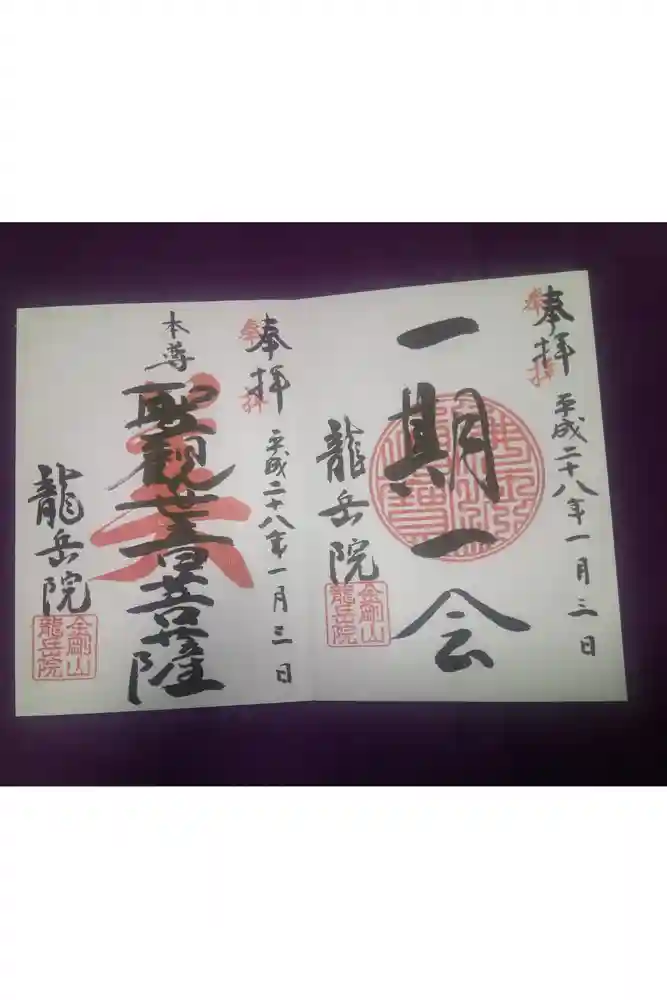 奉拝
平成二十八年一月三日
一期一会
龍岳院
金剛山
龍岳院
奉拝
平成二十八年一月三日
本尊
聖観世音菩薩
龍岳院
金剛山
龍岳院